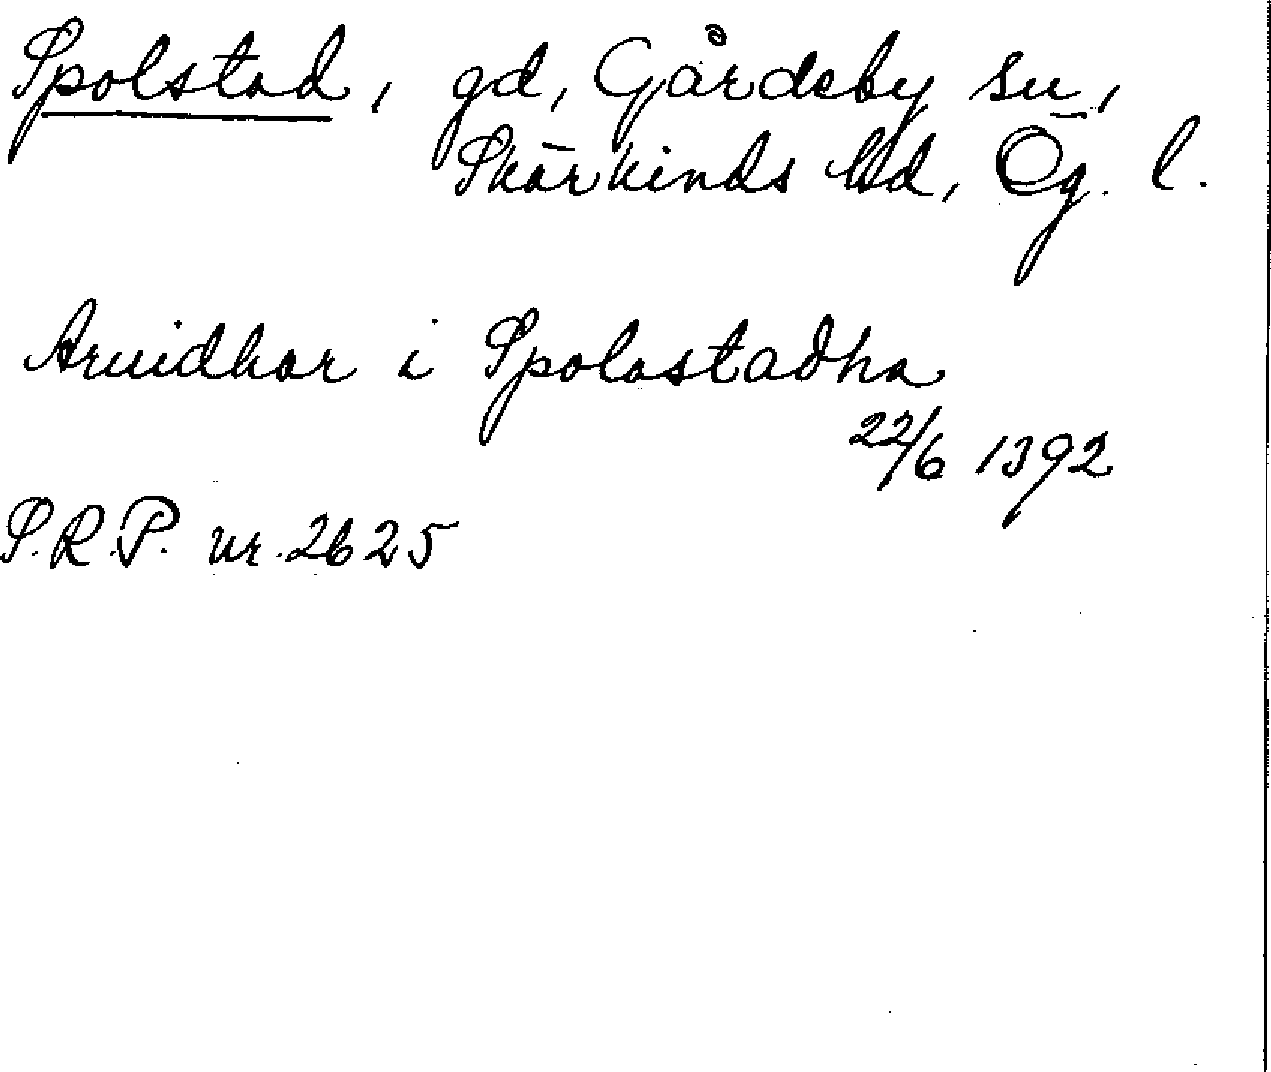 Spolstad, gd, Gårdeby sn,
Skärkinds hd, Ög. l.
Arvidhar i Spolastadha
22/6 1392
S.R.P. nr. 2625